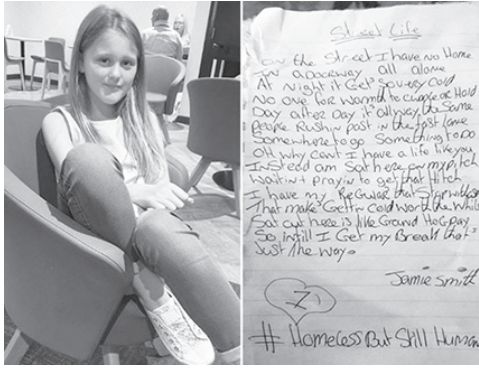 Street Life
on the street I have no Home
In a doorway all alone
At night it Get's so very cold
No one for warmth to cuddle or Hold
Day after Day it's allways the Same
People Rushin past in the fast lane
Somewhere to go Something to Do
OH why cant I have a life like you
Instead am Sat here on my pitch
Waitin + prayin to get that Hitch
I have my ReGular that Stop with
That make's Gettin cold worth the While
Sat out here is like Ground Hog Day
So intill I Get my Break that's
Just The way.
Jamie Smith
# HomelessBut Still Human